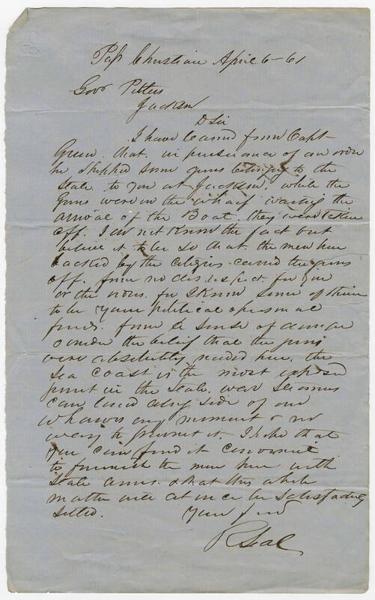 Pass Christian April 6-61
Govr Pettus
Jackson
D Sir
I have learned from Capt
Green that in pursuance of an order
he shipped some guns belonging to the
State to you at Jackson, while the
Guns were on the wharf waiting the
arrival of the Boat, they were taken
off. I do not know the fact but
believe it to be so that the men here
backed by the citizens carried the guns
off, from no disrespect for you
or the orders for I know some of them
to be your political & personal
friends. from a sense of danger
& under the belief that the guns
were absolutely needed here, the
sea coast is the most exposed
point in the State, war Steamers
can land along side of our
Wharves any moment & no
way to prevent it. I hope that
you can find it convenient
to furnish the men here with
State arms & that this whole
matter will at once be satisfactorily
settled.
Your friend
R Seal